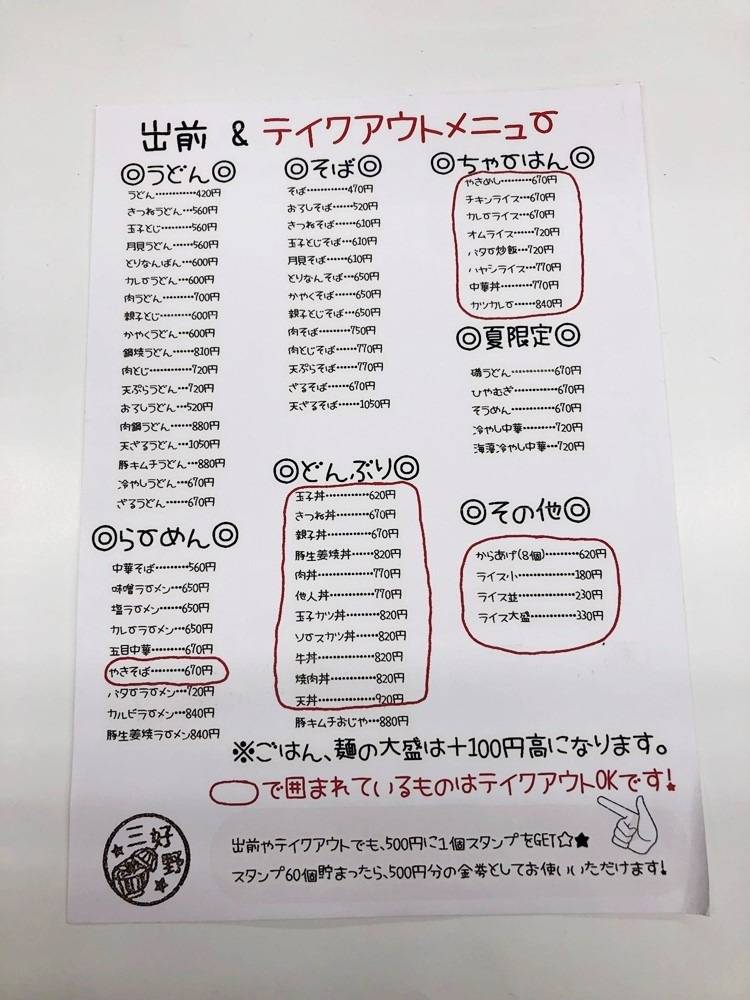 出前 & テイクアウトメニュー
◎うどん◎
うどん…………420円
きつねうどん…560円
玉子とじ………560円
月見うどん……560円
とりなんばん…600円
カレーうどん…600円
肉うどん………700円
親子とじ………600円
かやくうどん…600円
鍋焼うどん……810円
肉とじ…………720円
天ぷらうどん…720円
おろしうどん…520円
肉鍋うどん……880円
天ざるうどん…1050円
豚キムチうどん…880円
冷やしうどん…670円
ざるうどん……670円
◎らーめん◎
中華そば………560円
味噌ラーメン…650円
塩ラーメン……650円
カレーラーメン…650円
五目中華………670円
やきそば………670円
バターラーメン…720円
カルビラーメン…840円
豚生姜焼ラーメン840円
◎そば◎
そば…………470円
おろしそば……520円
きつねそば……610円
玉子とじそば…610円
月見そば………610円
とりなんそば…650円
かやくそば……650円
親子とじそば…650円
肉そば…………750円
肉とじそば……770円
天ぷらそば……770円
ざるそば………670円
天ざるそば……1050円
◎どんぶり◎
玉子丼…………620円
きつね丼………670円
親子丼…………670円
豚生姜焼丼……820円
肉丼……………770円
他人丼…………770円
玉子カツ丼……820円
ソースカツ丼…820円
牛丼……………820円
焼肉丼…………820円
天丼……………920円
豚キムチおじや…880円
◎ちゃーはん◎
やきめし………670円
チキンライス…670円
カレーライス…670円
オムライス……720円
バター炒飯…720円
ハヤシライス…770円
中華丼…………770円
カツカレー……840円
◎夏限定◎
磯うどん…………670円
ひやむぎ…………670円
そうめん…………670円
冷やし中華………720円
海藻冷やし中華…720円
◎その他◎
からあげ(8個)………620円
ライス小…………180円
ライス並…………230円
ライス大盛………330円
※ごはん、麺の大盛は+100円高になります。
で囲まれているものはテイクアウトOKです!
出前やテイクアウトでも、500円に1個スタンプをGET☆★
スタンプ60個貯まったら、500円分の金券としてお使いいただけます!
三好野